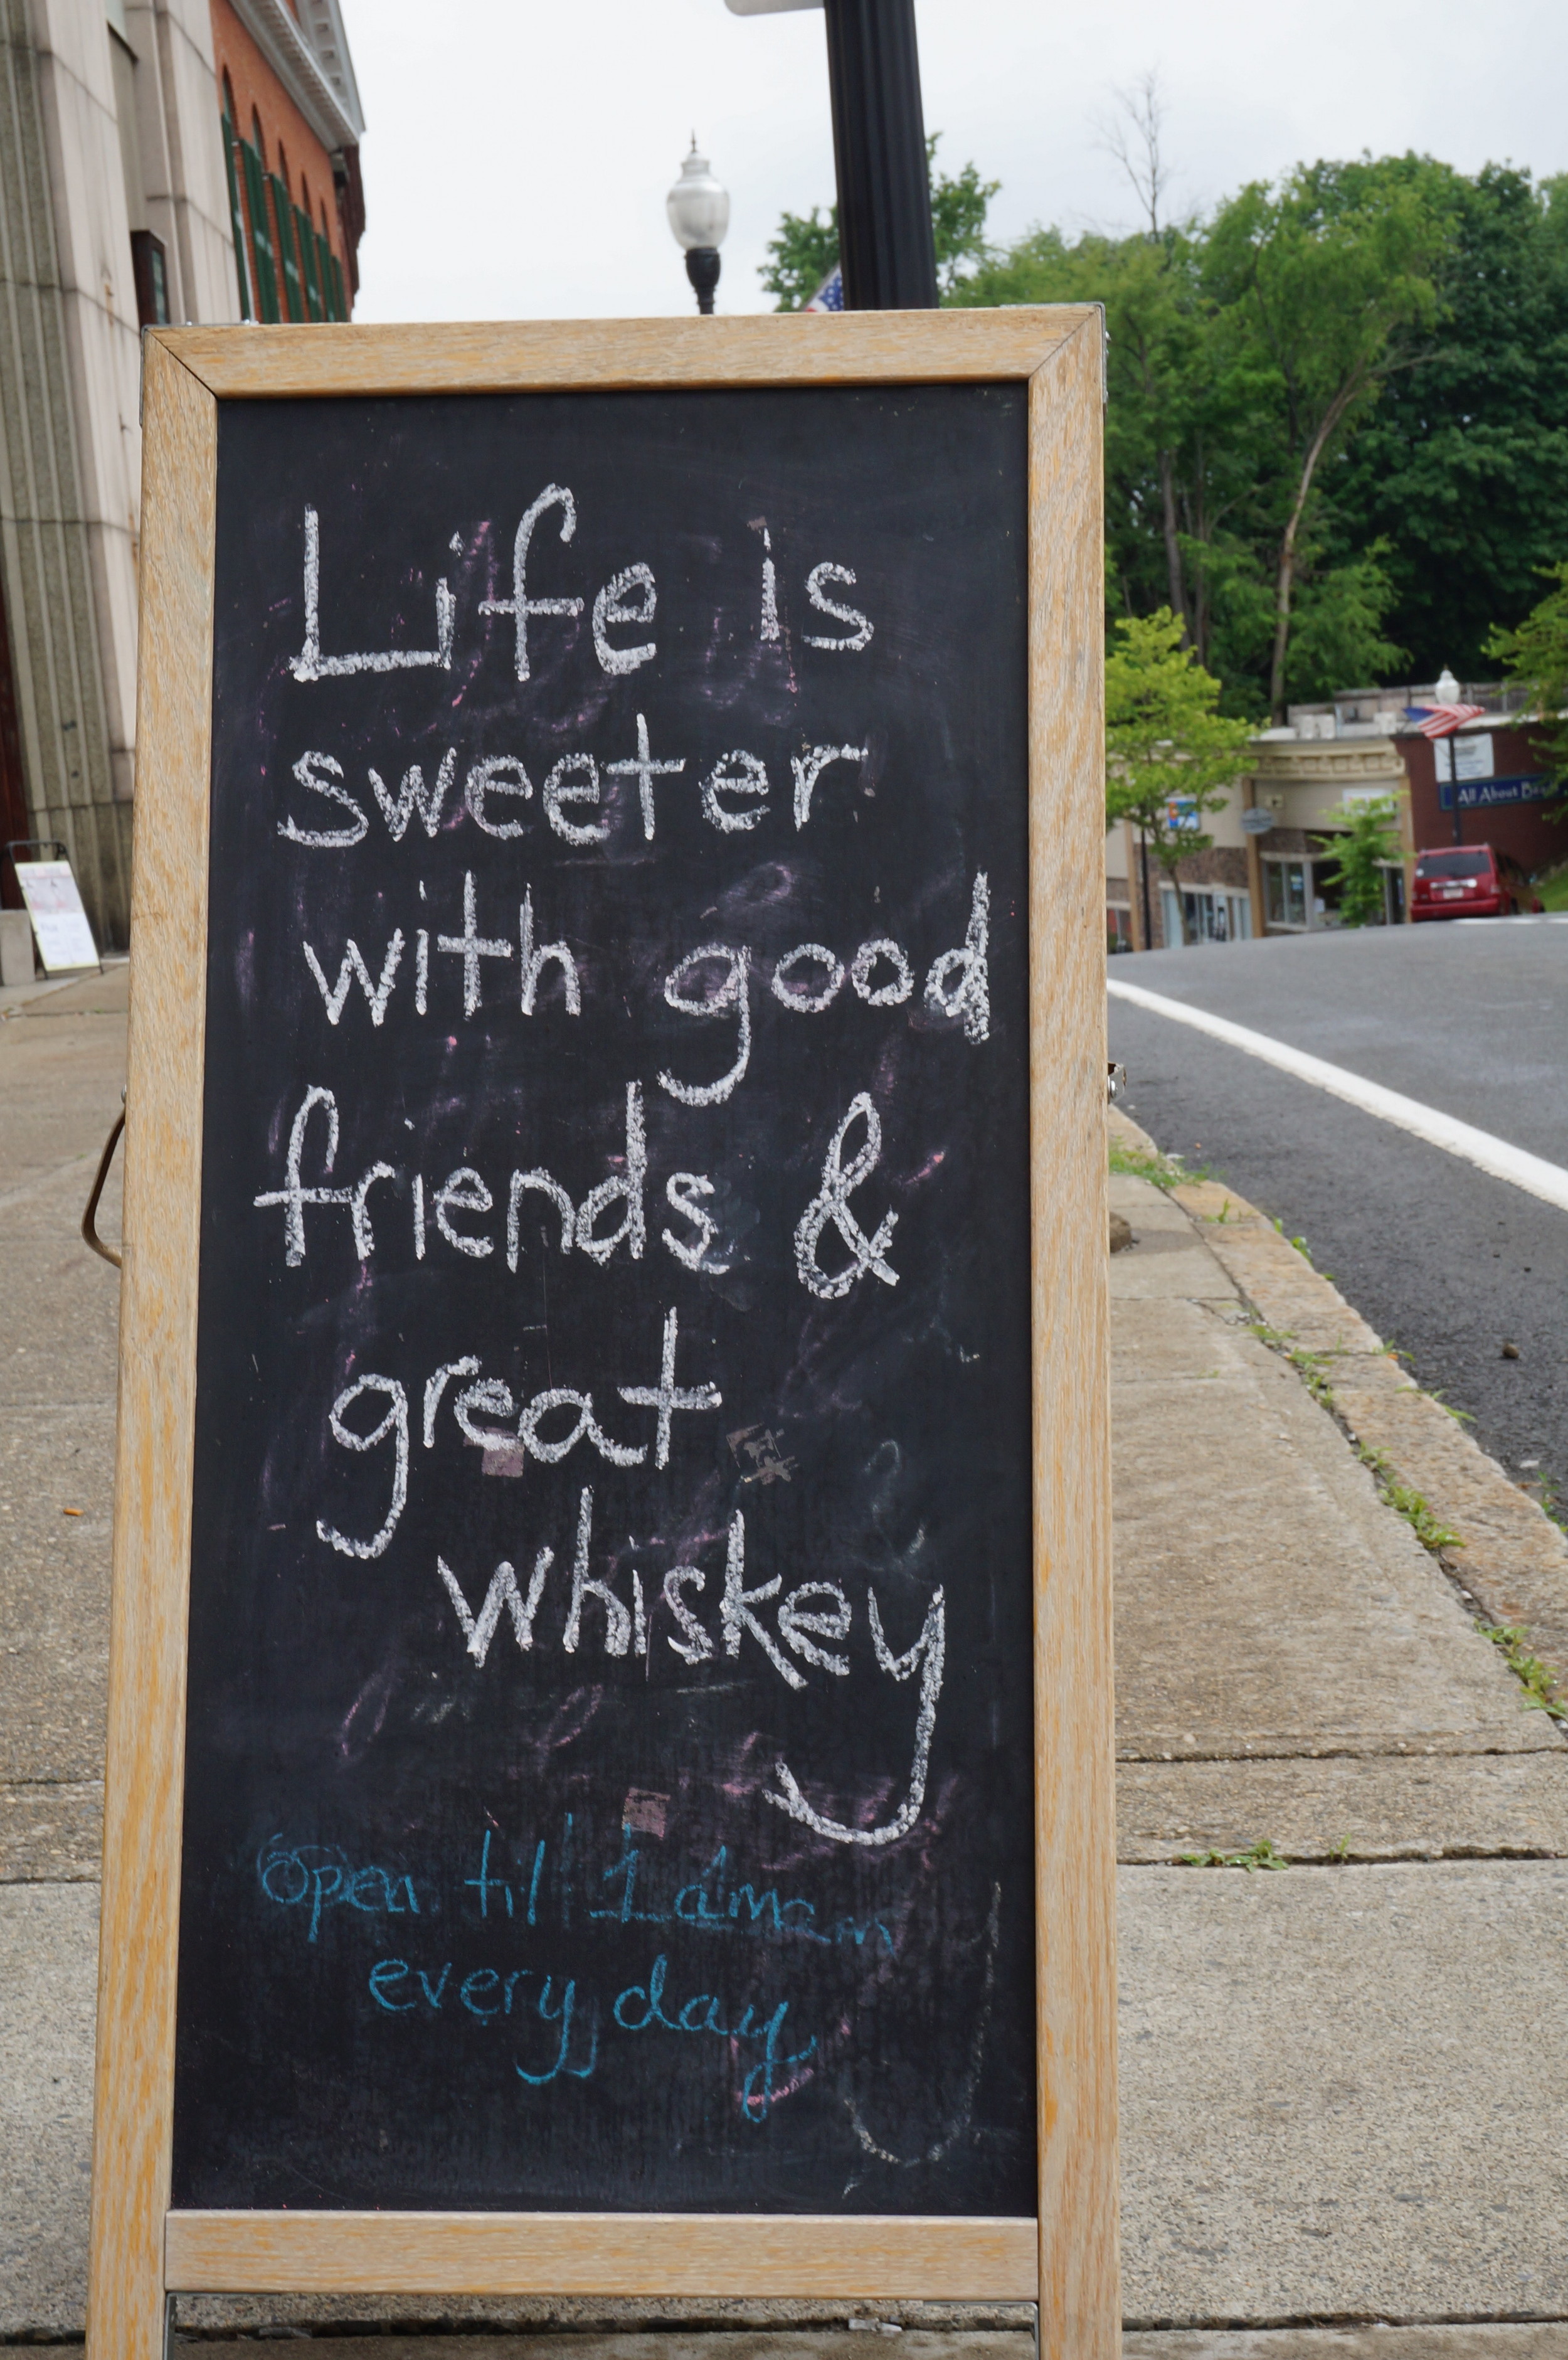 Life is
sweeter
with good
friends &
great
whiskey
open til 1 am
every day
All About